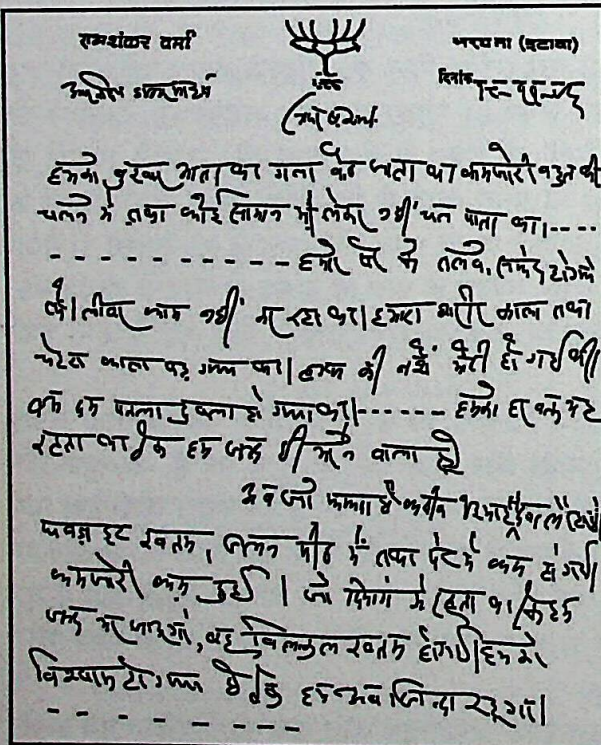 रामशंकर वर्मा
भरथना (इटावा)
दिनांक
हमको बुखार आता था गला बैठ जाता था कमजोरी बहुत थी
चलने में तथा कोई सामान भी लेकर नहीं चल पाता था।----
---------- हमारे पैर के तलवे, सफेद हो गये
थे। लीवर काम नहीं कर रहा था। हमारा शरीर काला तथा
चेहरा काला पड़ गया था। हाथ की नसें मोटी हो गई थी।
एक दम पतला दुबला हो गया था।------ हमको हर वक्त
रहता था कि हम जल्द ही मरने वाला हूँ
अब जो फायदा है
घबराहट खतम, जलन पीठ में तथा पेट में कम हो गई।
कमजोरी कम हुई। जो दिमाग में रहता था कि हम
जल्द मर जाऊगां, वह बिलकुल खतम हो गई। हमको
विश्वास हो गया है कि हम अब जिन्दा रहूगां।
- - - - - - - -